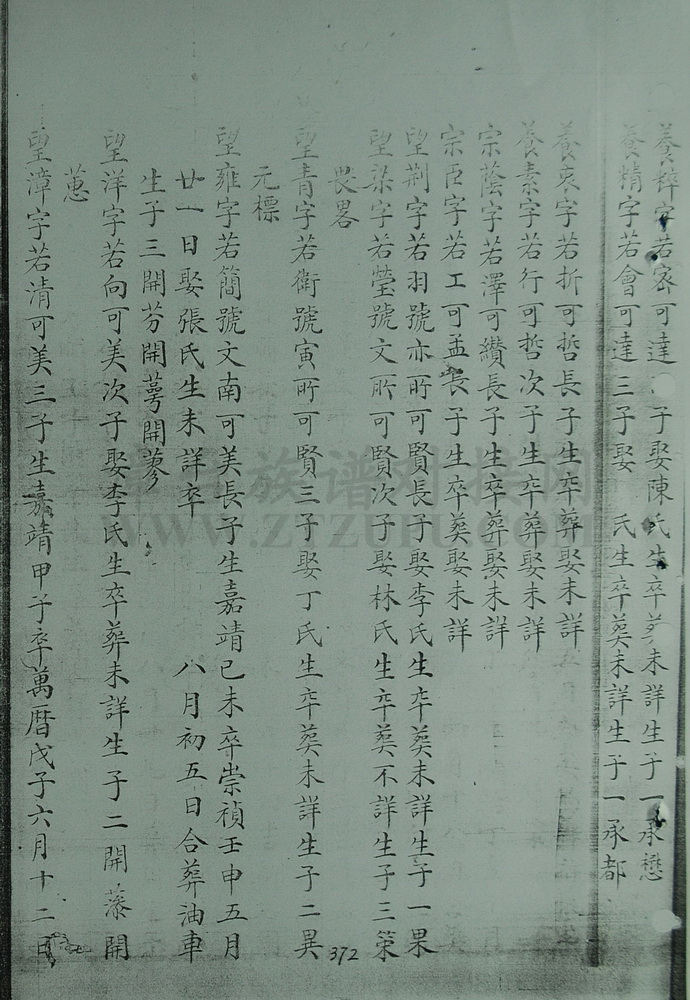 養粹字若密可達 子娶陳氏生卒葬未詳生子一承懋
養精字若會可達三子娶 氏生卒葬未詳生子一承都
養衷字若折可哲長子生卒葬娶未詳
養素字若行可哲次子生卒葬娶未詳
宗蔭字若澤可纘長子生卒葬娶未詳
宗臣字若工可孟長子生卒葬娶未詳
望荆字若羽號亦所可賢長子娶李氏生卒葬未詳生子一果
望梁字若瑩號文所可賢次子娶林氏生卒葬不詳生子三策
畏畧
望青字若衛號寅所可賢三子娶丁氏生卒葬未詳生子二異
元標
望雍字若簡號文南可美長子生嘉靖己未卒崇禎壬申五月
廿一日娶張氏生未詳卒 八月初五日合葬油車
生子三開芬開蕚開蓼
望洋字若向可美次子娶李氏生卒葬未詳生子二開蓁開
蕙
望漳字若清可美三子生嘉靖甲子卒萬曆戊子六月十二日
372
www.ZTZUPU.COM